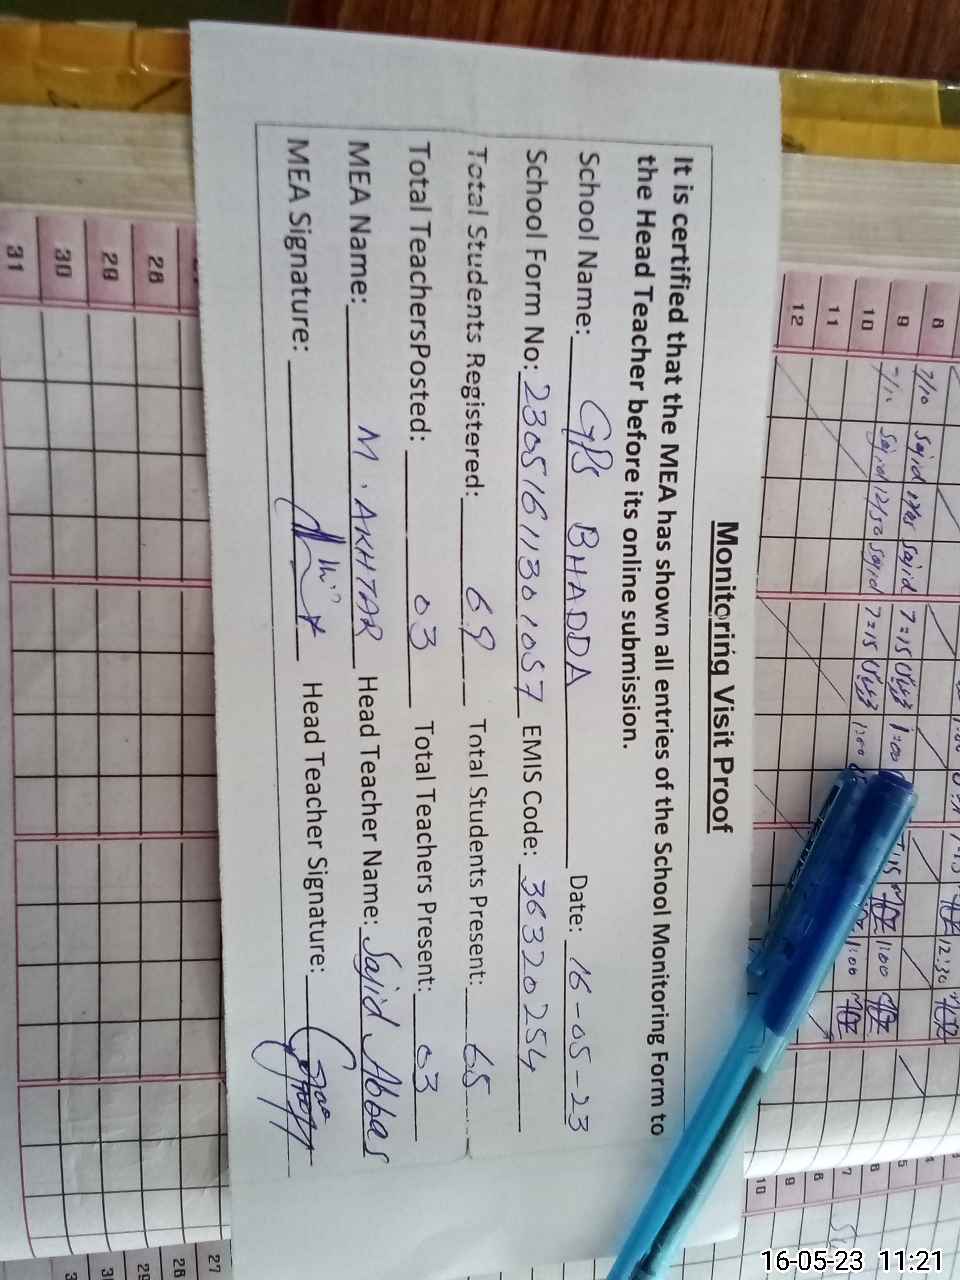 Monitoring Visit Proof
It is certified that the MEA has shown all entries of the School Monitoring Form to
the Head Teacher before its online submission.
School Name: GPS BHADDA Date: 16-05-23
School Form No: 23051611301057 EMIS Code: 36320254
Total Students Registered: 69 Total Students Present: 65
Total TeachersPosted: 03 Total Teachers Present: 03
MEA Name: M. AKHTAR Head Teacher Name: Sajid Abbas
MEA Signature: Head Teacher Signature:
8
9 7/10 Sajid Sajid 7=15 1:00
10 7/10 Sajid 12/50 Sajid 7=15 1:00 1:00
11
12
28
29
30
31
16-05-23 11:21